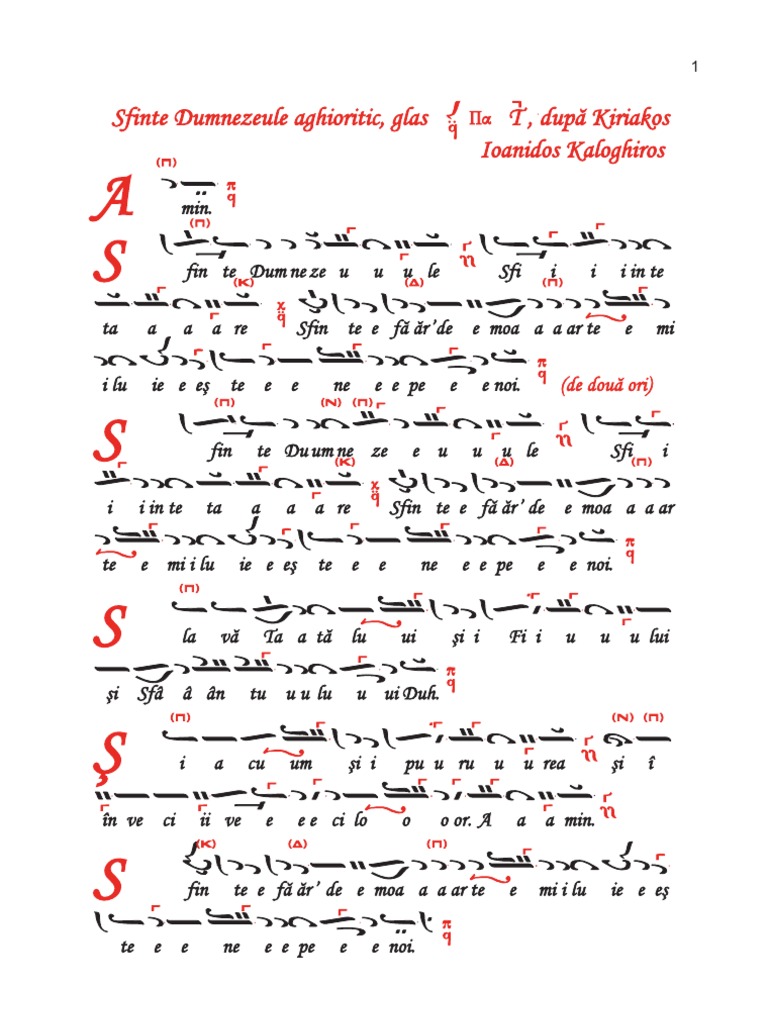 1
Sfinte Dumnezeule aghioritic, glas Πα , după Kiriakos
Ioanidos Kaloghiros
(Π)
A min.
(Π)
S fin te Dum ne ze u u u le Sfi i i i in te
(Κ) (Δ) (Π)
ta a a a re Sfin te e fă ăr' de e moa a a ar te e mi
i lu ie e eş te e e ne e e pe e e noi. (de două ori)
(Π) (Ν) (Π)
S fin te Du um ne ze e u u u le Sfi i
(Κ) (Δ) (Π)
i i in te ta a a a re Sfin te e fă ăr' de e moa a a ar
te e mi i lu ie e eş te e e ne e e pe e e noi.
(Π)
S la vă Ta a tă lu ui şi i Fi i u u u lui
şi Sfâ â ân tu u u lu u ui Duh.
(Π) (Ν) (Π)
Ş i a cu um şi i pu u ru u u rea şi î
în ve ci ii ve e e e ci lo o o or. A a a min.
(Κ) (Δ) (Π)
S fin te e fă ăr' de e moa a a ar te e mi i lu ie e eş
te e e ne e e pe e e noi.